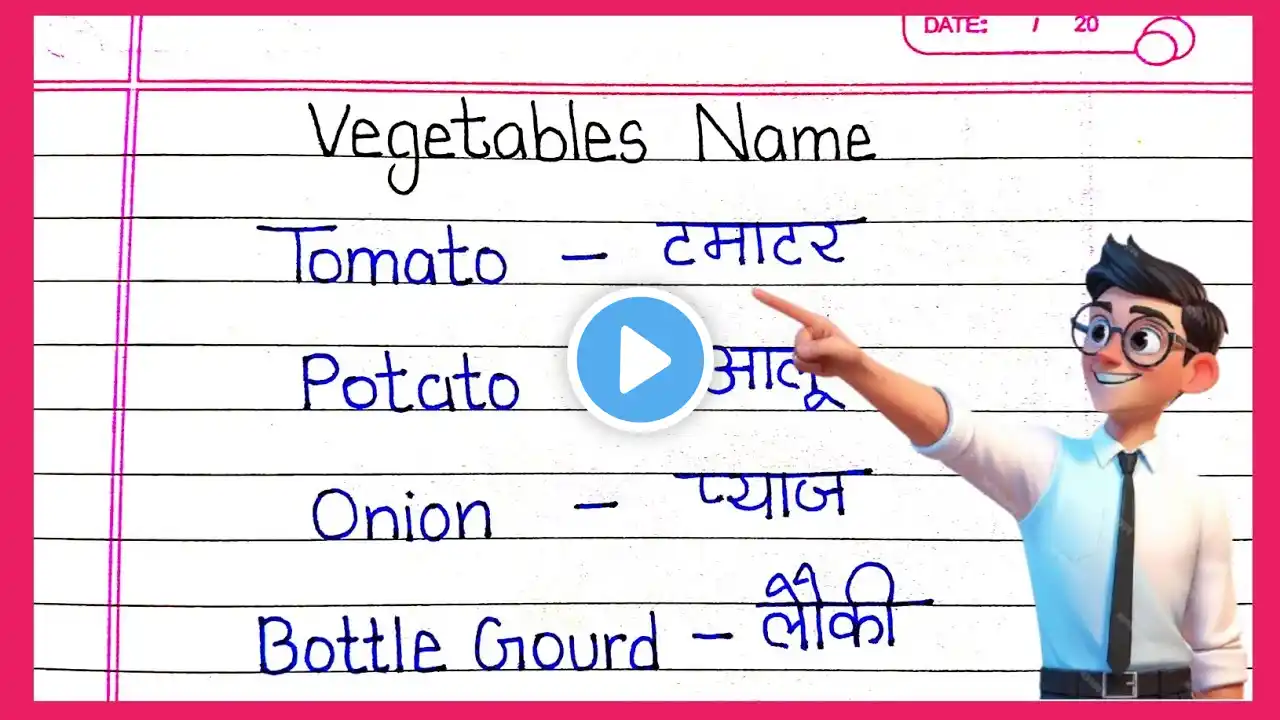 DATE: / 20
Vegetables Name
Tomato – टमाटर
Potato आलू
Onion – प्याज
Bottle Gourd – लौकी